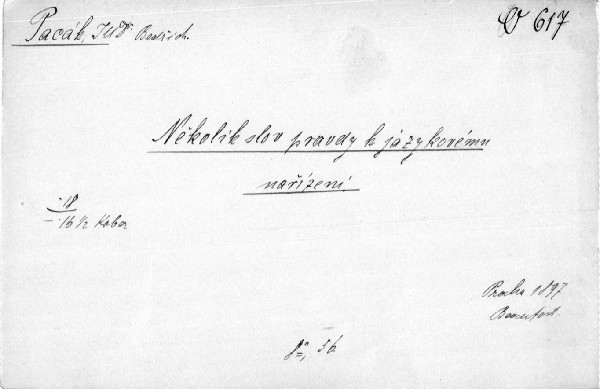 Pacák, JUD. Bedřich.
O 617
Několik slov pravdy k jazykovému
nařízení.
18
16 1/2 Kober
Praha 1897
8º, 56